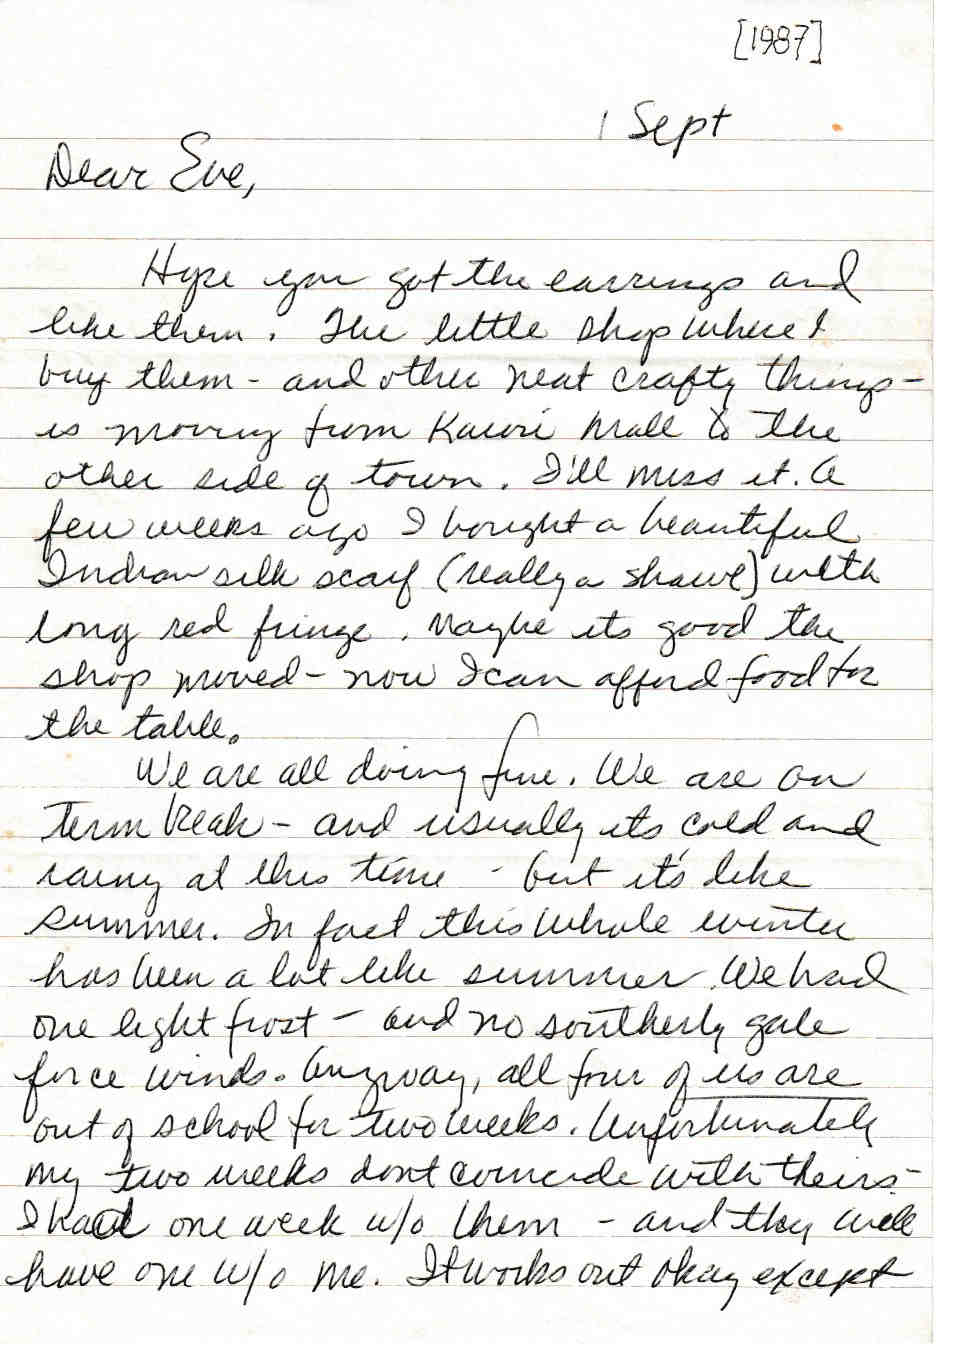 [1987]
1 Sept
Dear Eve,
Hope you got the earrings and
like them. The little shop where I
buy them - and other neat crafty things -
is moving from Kawri Mall to the
other side of town. I'll miss it. A
few weeks ago I bought a beautiful
Indian silk scarf (really a shawl) with
long red fringe. Maybe its good the
shop moved - now I can afford food for
the table.
We are all doing fine. We are on
Term break - and usually its cold and
rainy at this time - but it's like
summer. In fact this whole winter
has been a lot like summer. We had
one light frost - and no southerly gale
force winds. Anyway, all four of us are
out of school for two weeks. Unfortunately
my two weeks dont coincide with theirs -
I had one week w/o them - and they will
have one w/o me. It works out okay except